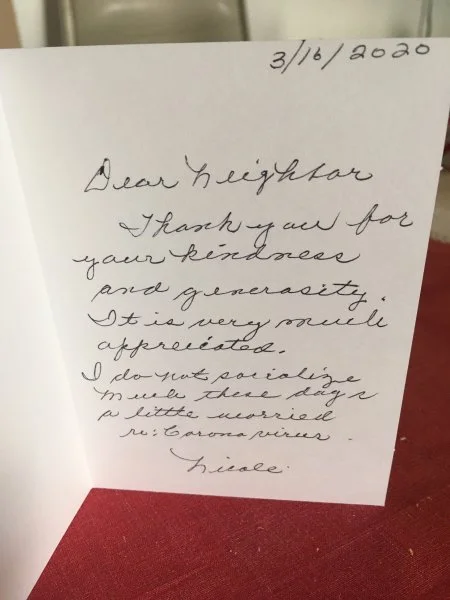 3/16/2020
Dear Neighbor
Thank you for
your kindness
and generosity.
It is very much
appreciated.
I do not socialize
much these days
a little worried
re: Corona virus.
Nicole